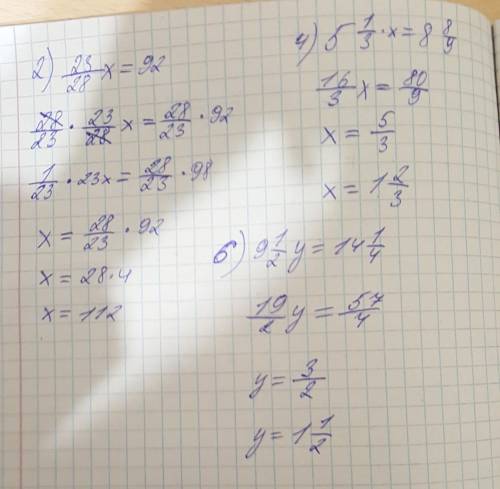 2) 23/28 x = 92
28/23 · 23/28 x = 28/23 · 92
1/23 · 23x = 28/23 · 98
x = 28/23 · 92
x = 28·4
x = 112
4) 5 1/3 · x = 8 8/9
16/3 x = 80/9
x = 5/3
x = 1 2/3
6) 9 1/2 y = 14 1/4
19/2 y = 57/4
y = 3/2
y = 1 1/2